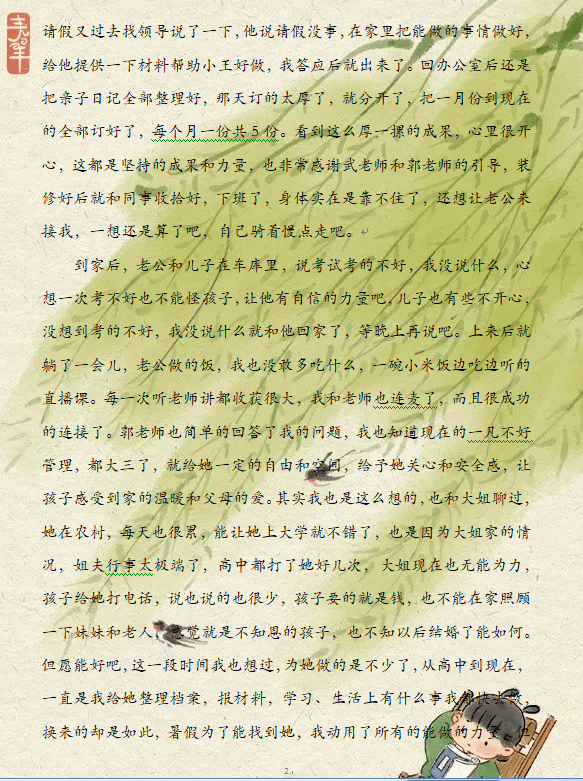 请假又过去找领导说了一下，他说请假没事，在家里把能做的事情做好，
给他提供一下材料帮助小王好做，我答应后就出来了。回办公室后还是
把亲子日记全部整理好，那天订的太厚了，就分开了，把一月份到现在
的全部订好了，每个月一份共5份。看到这么厚一摞的成果，心里很开
心，这都是坚持的成果和力量，也非常感谢武老师和郭老师的引导，装
修好后就和同事收拾好，下班了，身体实在是靠不住了，还想让老公来
接我，一想还是算了吧，自己骑着慢点走吧。
到家后，老公和儿子在车库里，说考试考的不好，我没说什么，心
想一次考不好也不能怪孩子，让他有自信的力量吧，儿子也有些不开心，
没想到考的不好，我没说什么就和他回家了，等晚上再说吧。上来后就
躺了一会儿，老公做的饭，我也没敢多吃什么，一碗小米饭边吃边听的
直播课。每一次听老师讲都收获很大，我和老师也连麦了，而且很成功
的连接了。郭老师也简单的回答了我的问题，我也知道现在的一凡不好
管理，都大三了，就给她一定的自由和空间，给予她关心和安全感，让
孩子感受到家的温暖和父母的爱。其实我也是这么想的，也和大姐聊过，
她在农村，每天也很累，能让她上大学就不错了，也是因为大姐家的情
况，姐夫行事太极端了，高中都打了她好几次，大姐现在也无能为力，
孩子给她打电话，说也说的也很少，孩子要的就是钱，也不能在家照顾
一下妹妹和老人，感觉就是不知恩的孩子，也不知以后结婚了能如何。
但愿能好吧，这一段时间我也想过，为她做的是不少了，从高中到现在，
一直是我给她整理档案，报材料，学习、生活上有什么事我都快去做，
换来的却是如此，暑假为了能找到她，我动用了所有的能做的力量，但
2